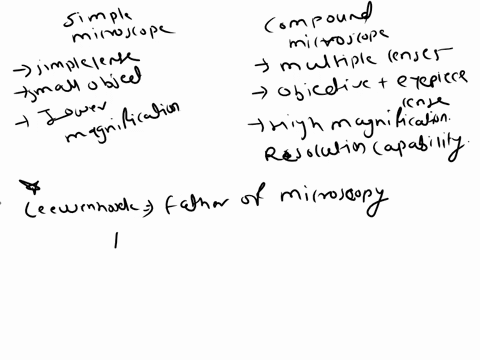 Simple
microscope
→ simple lense
→ small object
→ Lower
magnification
Compound
microscope
→ multiple lenses
→ objective + eyepiece
lense
→ High magnification.
Resolution capability.
Leewenhoek → Father of microscopy